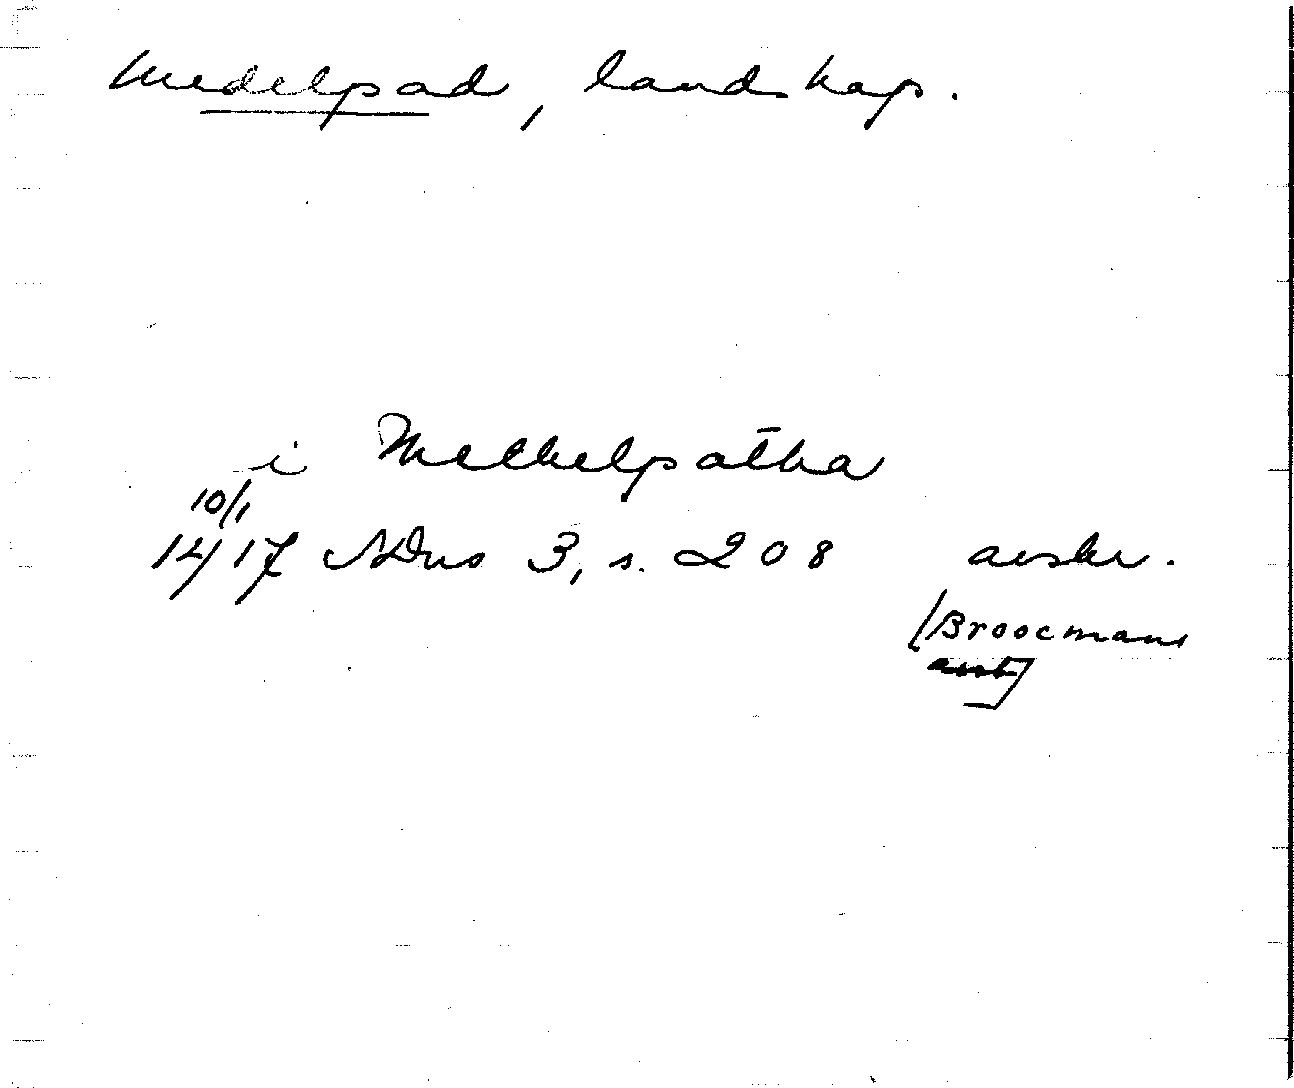 Medelpad, landskap.
i Methelpatha
10/1
1417 NDns 3, s. 208 avskr.
(Broocmans